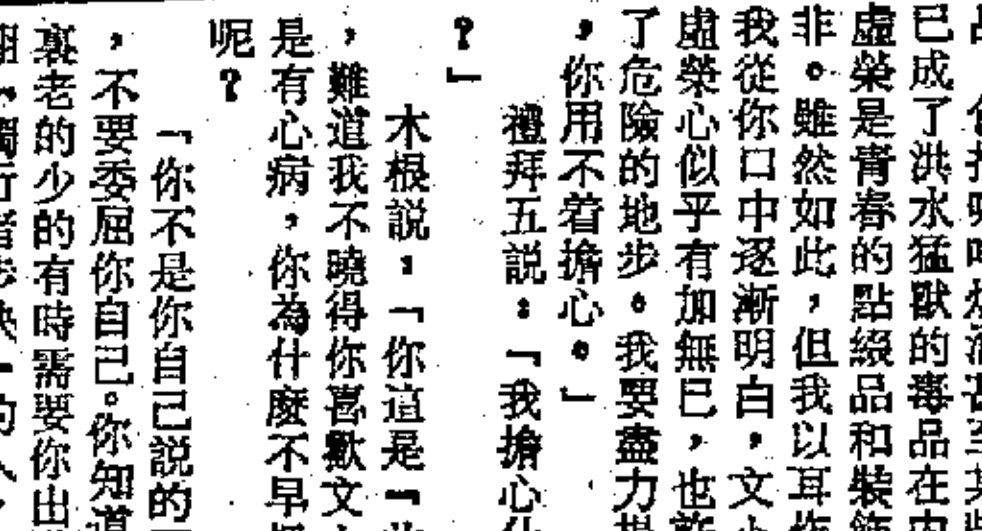 已成了洪水猛獸的毒品在
虛榮是青春的點綴品和裝飾
非。雖然如此，但我以耳
我從你口中逐漸明白，文
虛榮心似乎有加無已，也許
了危險的地步。我要盡力
，你用不着擔心。」
禮拜五説：「我擔心
？」
木根説，「你這是「
，難道我不曉得你喜歡文
是有心病，你為什麼不早
呢？
「你不是你自己説的
，不要委屈你自己。你知道
裏老的少的有時需要你出